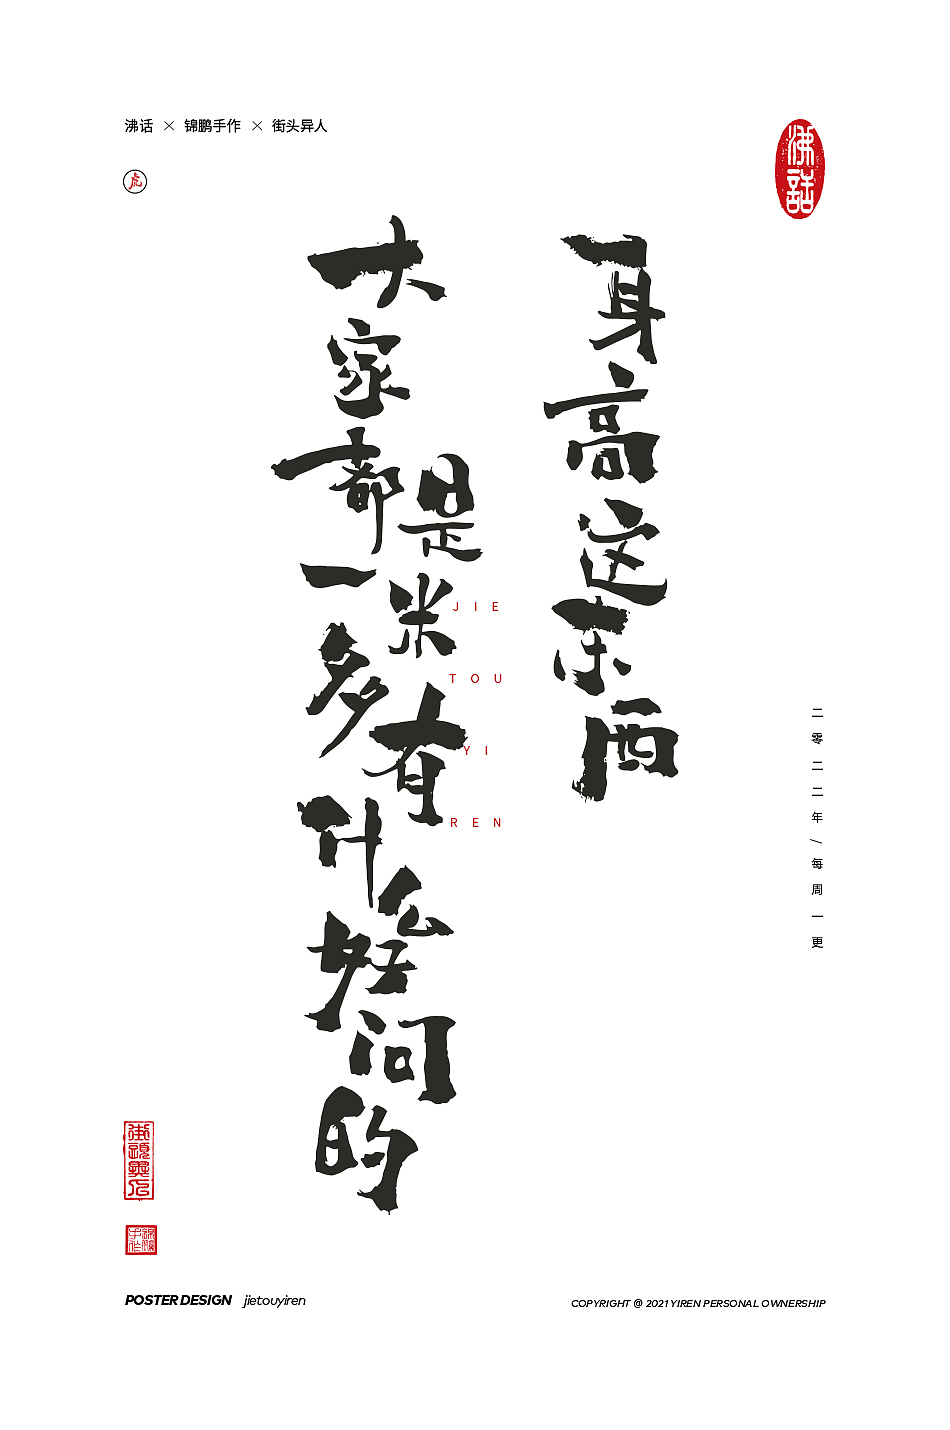 沸话 × 锦鹏手作 × 街头异人
虎
沸話
身高这东西
大家都是一米多有什么好问的
JIE
TOU
YI
REN
二零二二年/每周一更
街頭異人
POSTER DESIGN jietouyiren
COPYRIGHT @ 2021 YIREN PERSONAL OWNERSHIP